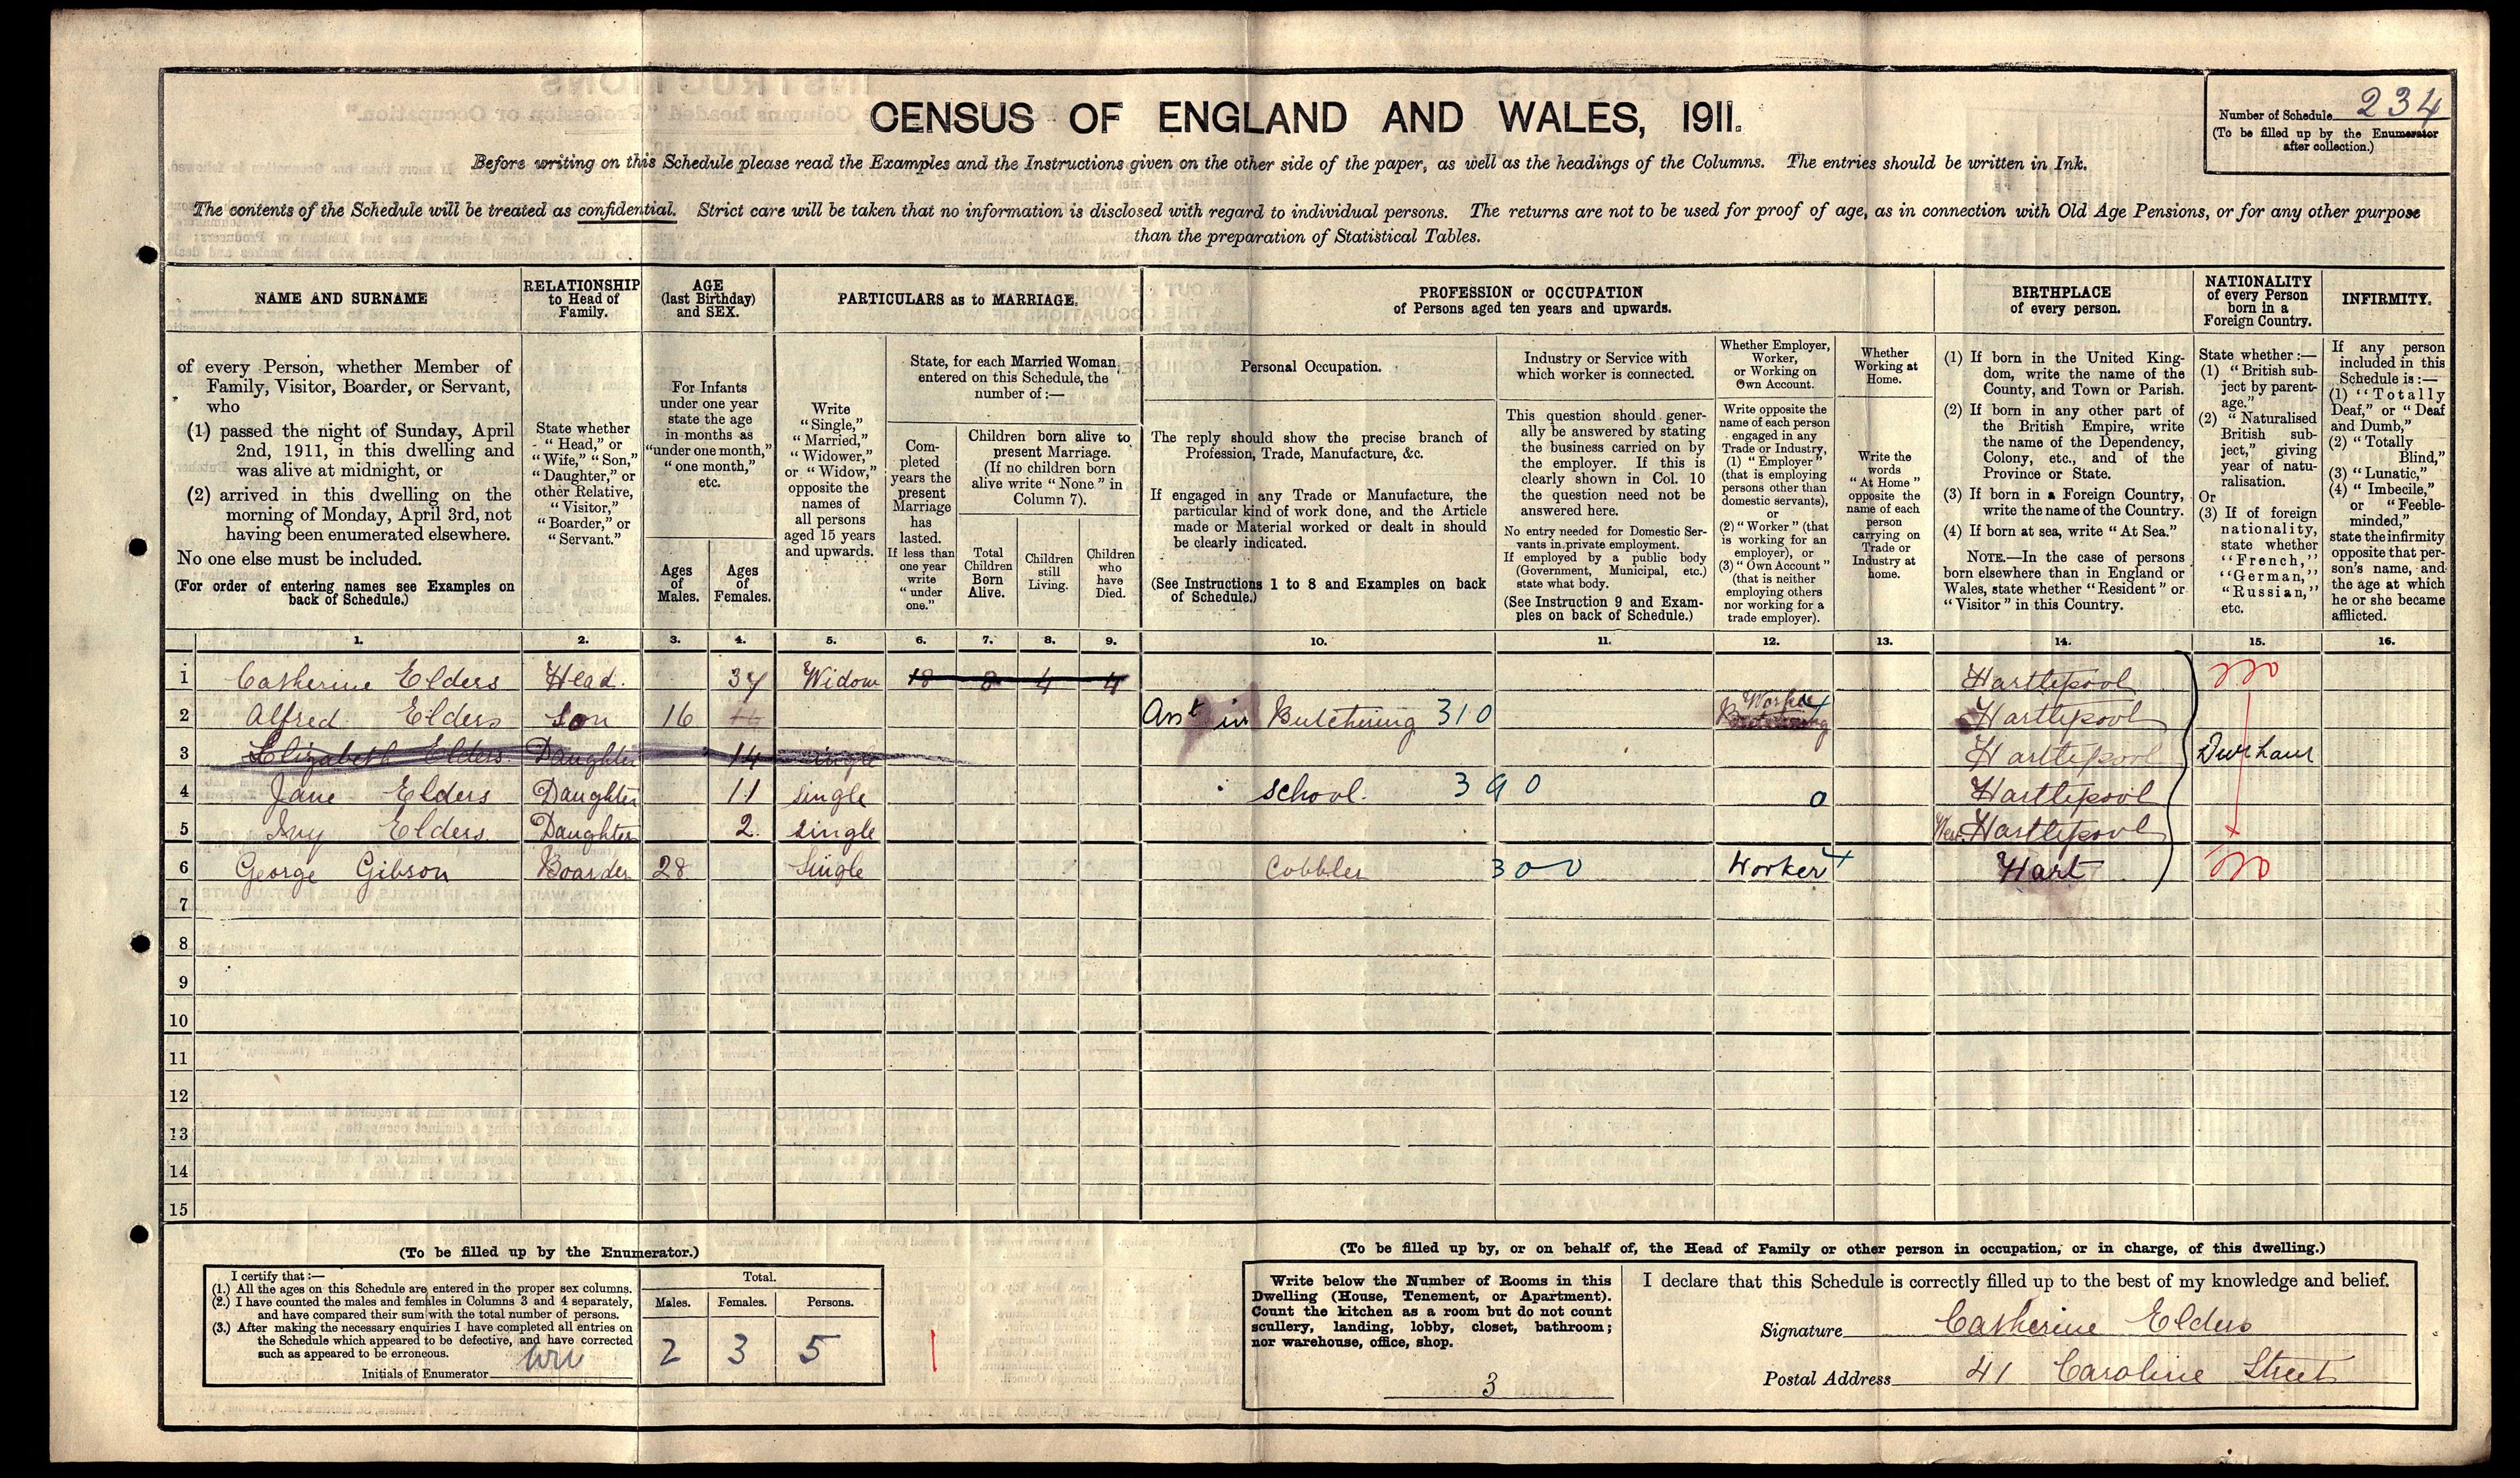 CENSUS OF ENGLAND AND WALES, 1911.
Number of Schedule 234
(To be filled up by the Enumerator
after collection.)
Before writing on this Schedule please read the Examples and the Instructions given on the other side of the paper, as well as the headings of the Columns. The entries should be written in Ink.
The contents of the Schedule will be treated as confidential. Strict care will be taken that no information is disclosed with regard to individual persons. The returns are not to be used for proof of age, as in connection with Old Age Pensions, or for any other purpose
than the preparation of Statistical Tables.
NAME AND SURNAME
RELATIONSHIP
to Head of
Family.
AGE
(last Birthday)
and SEX.
PARTICULARS as to MARRIAGE.
PROFESSION or OCCUPATION
of Persons aged ten years and upwards.
BIRTHPLACE
of every person.
NATIONALITY
of every Person
born in a
Foreign Country.
INFIRMITY.
of every Person, whether Member of
Family, Visitor, Boarder, or Servant,
who
(1) passed the night of Sunday, April
2nd, 1911, in this dwelling and
was alive at midnight, or
(2) arrived in this dwelling on the
morning of Monday, April 3rd, not
having been enumerated elsewhere.
No one else must be included.
(For order of entering names see Examples on
back of Schedule.)
State whether
"Head," or
"Wife," "Son,"
"Daughter," or
other Relative,
"Visitor,"
"Boarder," or
"Servant."
For Infants
under one year
state the age
in months as
"under one month,"
"one month,"
etc.
Ages
of
Males.
Ages
of
Females.
Write
"Single,"
"Married,"
"Widower,"
or "Widow,"
opposite the
names of
all persons
aged 15 years
and upwards.
State, for each Married Woman
entered on this Schedule, the
number of:—
Com-
pleted
years the
present
Marriage
has
lasted.
If less than
one year
write
"under
one."
Children born alive to
present Marriage.
(If no children born
alive write "None" in
Column 7).
Total
Children
Born
Alive.
Children
still
Living.
Children
who
have
Died.
Personal Occupation.
The reply should show the precise branch of
Profession, Trade, Manufacture, &c.
If engaged in any Trade or Manufacture, the
particular kind of work done, and the Article
made or Material worked or dealt in should
be clearly indicated.
(See Instructions 1 to 8 and Examples on back
of Schedule.)
Industry or Service with
which worker is connected.
This question should gener-
ally be answered by stating
the business carried on by
the employer. If this is
clearly shown in Col. 10
the question need not be
answered here.
No entry needed for Domestic Ser-
vants in private employment.
If employed by a public body
(Government, Municipal, etc.)
state what body.
(See Instruction 9 and Exam-
ples on back of Schedule.)
Whether Employer,
Worker,
or Working on
Own Account.
Write opposite the
name of each person
engaged in any
Trade or Industry,
(1) "Employer"
(that is employing
persons other than
domestic servants),
or
(2) "Worker" (that
is working for an
employer), or
(3) "Own Account"
(that is neither
employing others
nor working for a
trade employer).
Whether
Working at
Home.
Write the
words
"At Home"
opposite the
name of each
person
carrying on
Trade or
Industry at
home.
(1) If born in the United King-
dom, write the name of the
County, and Town or Parish.
(2) If born in any other part of
the British Empire, write
the name of the Dependency,
Colony, etc., and of the
Province or State.
(3) If born in a Foreign Country,
write the name of the Country.
(4) If born at sea, write "At Sea."
NOTE.—In the case of persons
born elsewhere than in England or
Wales, state whether "Resident" or
"Visitor" in this Country.
State whether:—
(1) "British sub-
ject by parent-
age."
(2) "Naturalised
British sub-
ject," giving
year of natu-
ralisation.
Or
(3) If of foreign
nationality,
state whether
"French,"
"German,"
"Russian,"
etc.
If any person
included in this
Schedule is:—
(1) "Totally
Deaf," or "Deaf
and Dumb,"
(2) "Totally
Blind,"
(3) "Lunatic,"
(4) "Imbecile,"
or "Feeble-
minded,"
state the infirmity
opposite that per-
son's name, and
the age at which
he or she became
afflicted.
1. 2. 3. 4. 5. 6. 7. 8. 9. 10. 11. 12. 13. 14. 15. 16.
1 Catherine Elders Head. 37 Widow 18 8 4 4 Hartlepool
2 Alfred Elders son 16 Asst in Butchering 310 Worker Hartlepool
3 Elizabeth Elders Daughter 14 single Hartlepool Durham
4 Jane Elders Daughter 11 single school. 390 0 Hartlepool
5 Ivy Elders. Daughter 2. single West Hartlepool
6 George Gibson Boarder 28 Single Cobbler 300 Worker Hart
7
8
9
10
11
12
13
14
15
(To be filled up by the Enumerator.)
I certify that:—
(1.) All the ages on this Schedule are entered in the proper sex columns.
(2.) I have counted the males and females in Columns 3 and 4 separately,
and have compared their sum with the total number of persons.
(3.) After making the necessary enquiries I have completed all entries on
the Schedule which appeared to be defective, and have corrected
such as appeared to be erroneous.
Initials of Enumerator
Total.
Males. Females. Persons.
2 3 5
(To be filled up by, or on behalf of, the Head of Family or other person in occupation, or in charge, of this dwelling.)
Write below the Number of Rooms in this
Dwelling (House, Tenement, or Apartment).
Count the kitchen as a room but do not count
scullery, landing, lobby, closet, bathroom;
nor warehouse, office, shop.
3
I declare that this Schedule is correctly filled up to the best of my knowledge and belief.
Signature Catherine Elders
Postal Address 41 Caroline Street